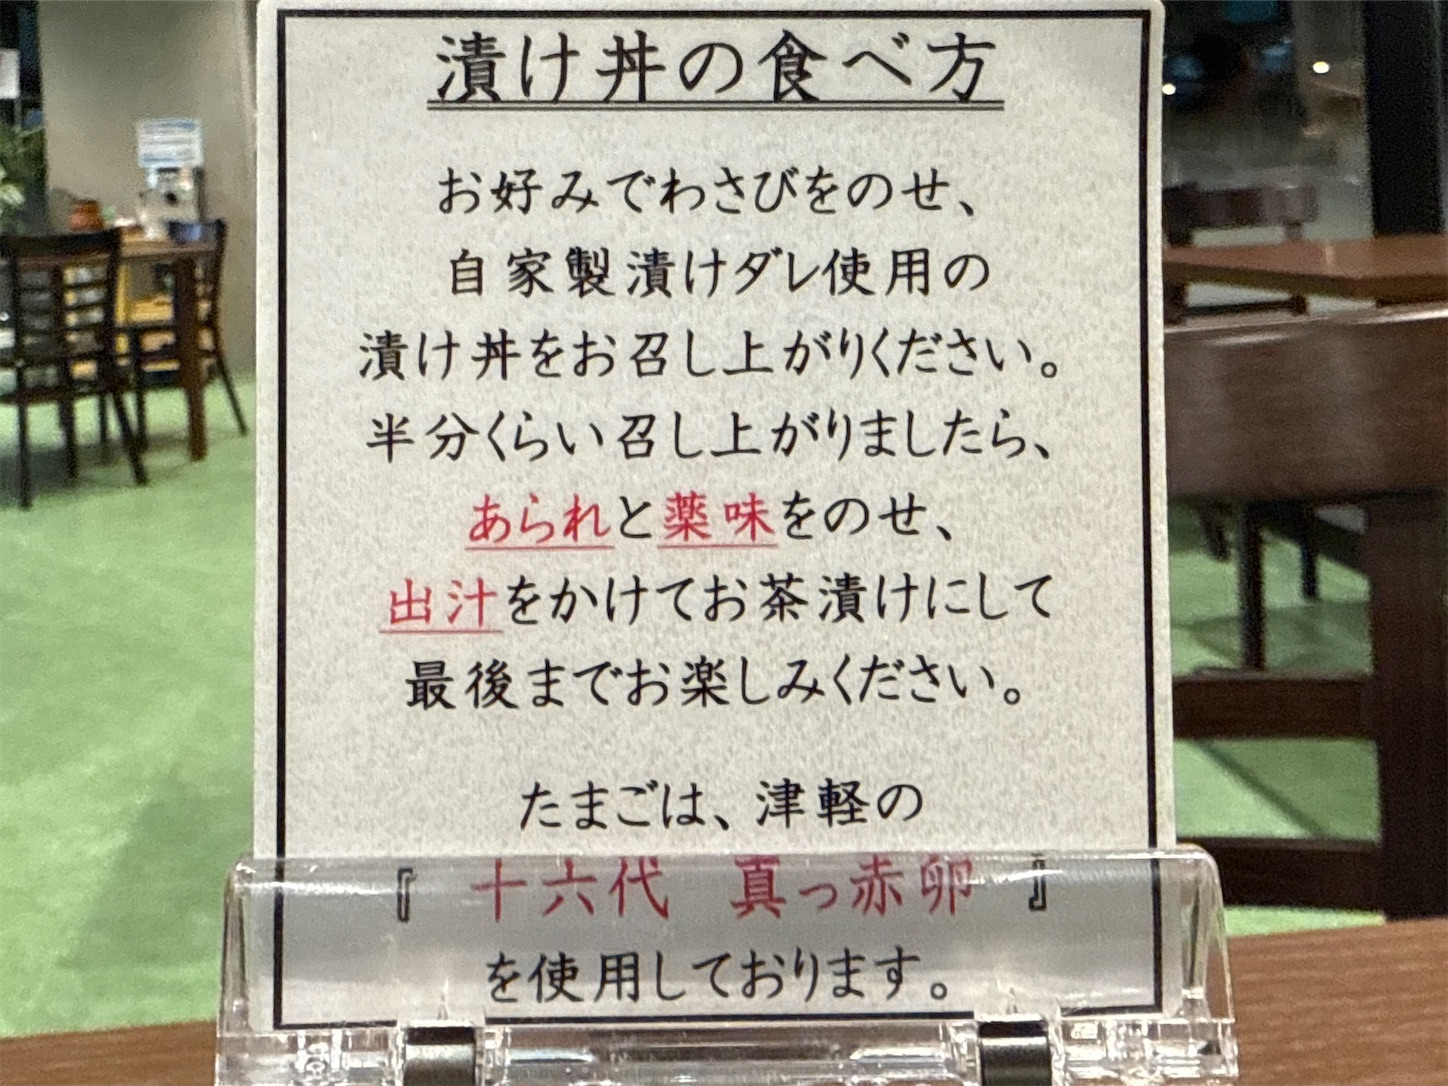 漬け丼の食べ方
お好みでわさびをのせ、
自家製漬けダレ使用の
漬け丼をお召し上がりください。
半分くらい召し上がりましたら、
あられと薬味をのせ、
出汁をかけてお茶漬けにして
最後までお楽しみください。
たまごは、津軽の
『 十六代 真っ赤卵 』
を使用しております。